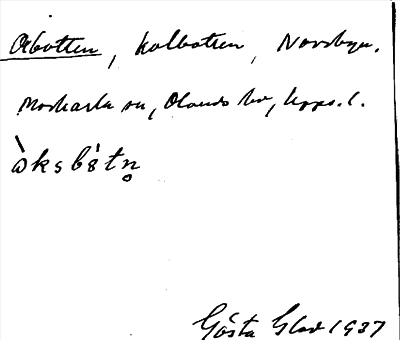 Oxbotten, kolbotten, Norrbyn.
Morkarla sn, Olands hd, Upps. l.
ὼksbȯ́tn̥
Gösta Glad 1937